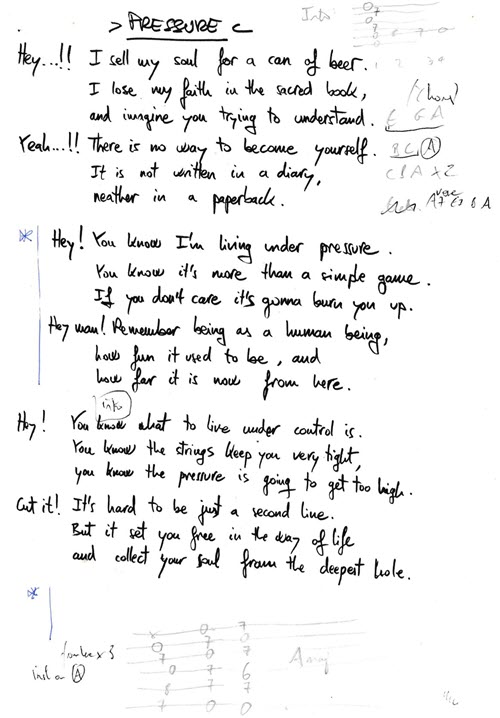 > PRESSURE <
Hey...!! I sell my soul for a can of beer.
I lose my faith in the sacred book,
and imagine you trying to understand.
Yeah...!! There is no way to become yourself.
It is not written in a diary,
neather in a paperback.
* Hey! You know I'm living under pressure.
You know it's more than a simple game.
If you don't care it's gonna burn you up.
Hey man! Remember being as a human being,
how fun it used to be, and
how far it is now from here.
Hey! You know what to live under control is.
You know the strings keep you very tight,
you know the pressure is going to get too high.
Cut it! It's hard to be just a second line.
But it set you free in the way of life
and collect your soul from the deepest hole.
*